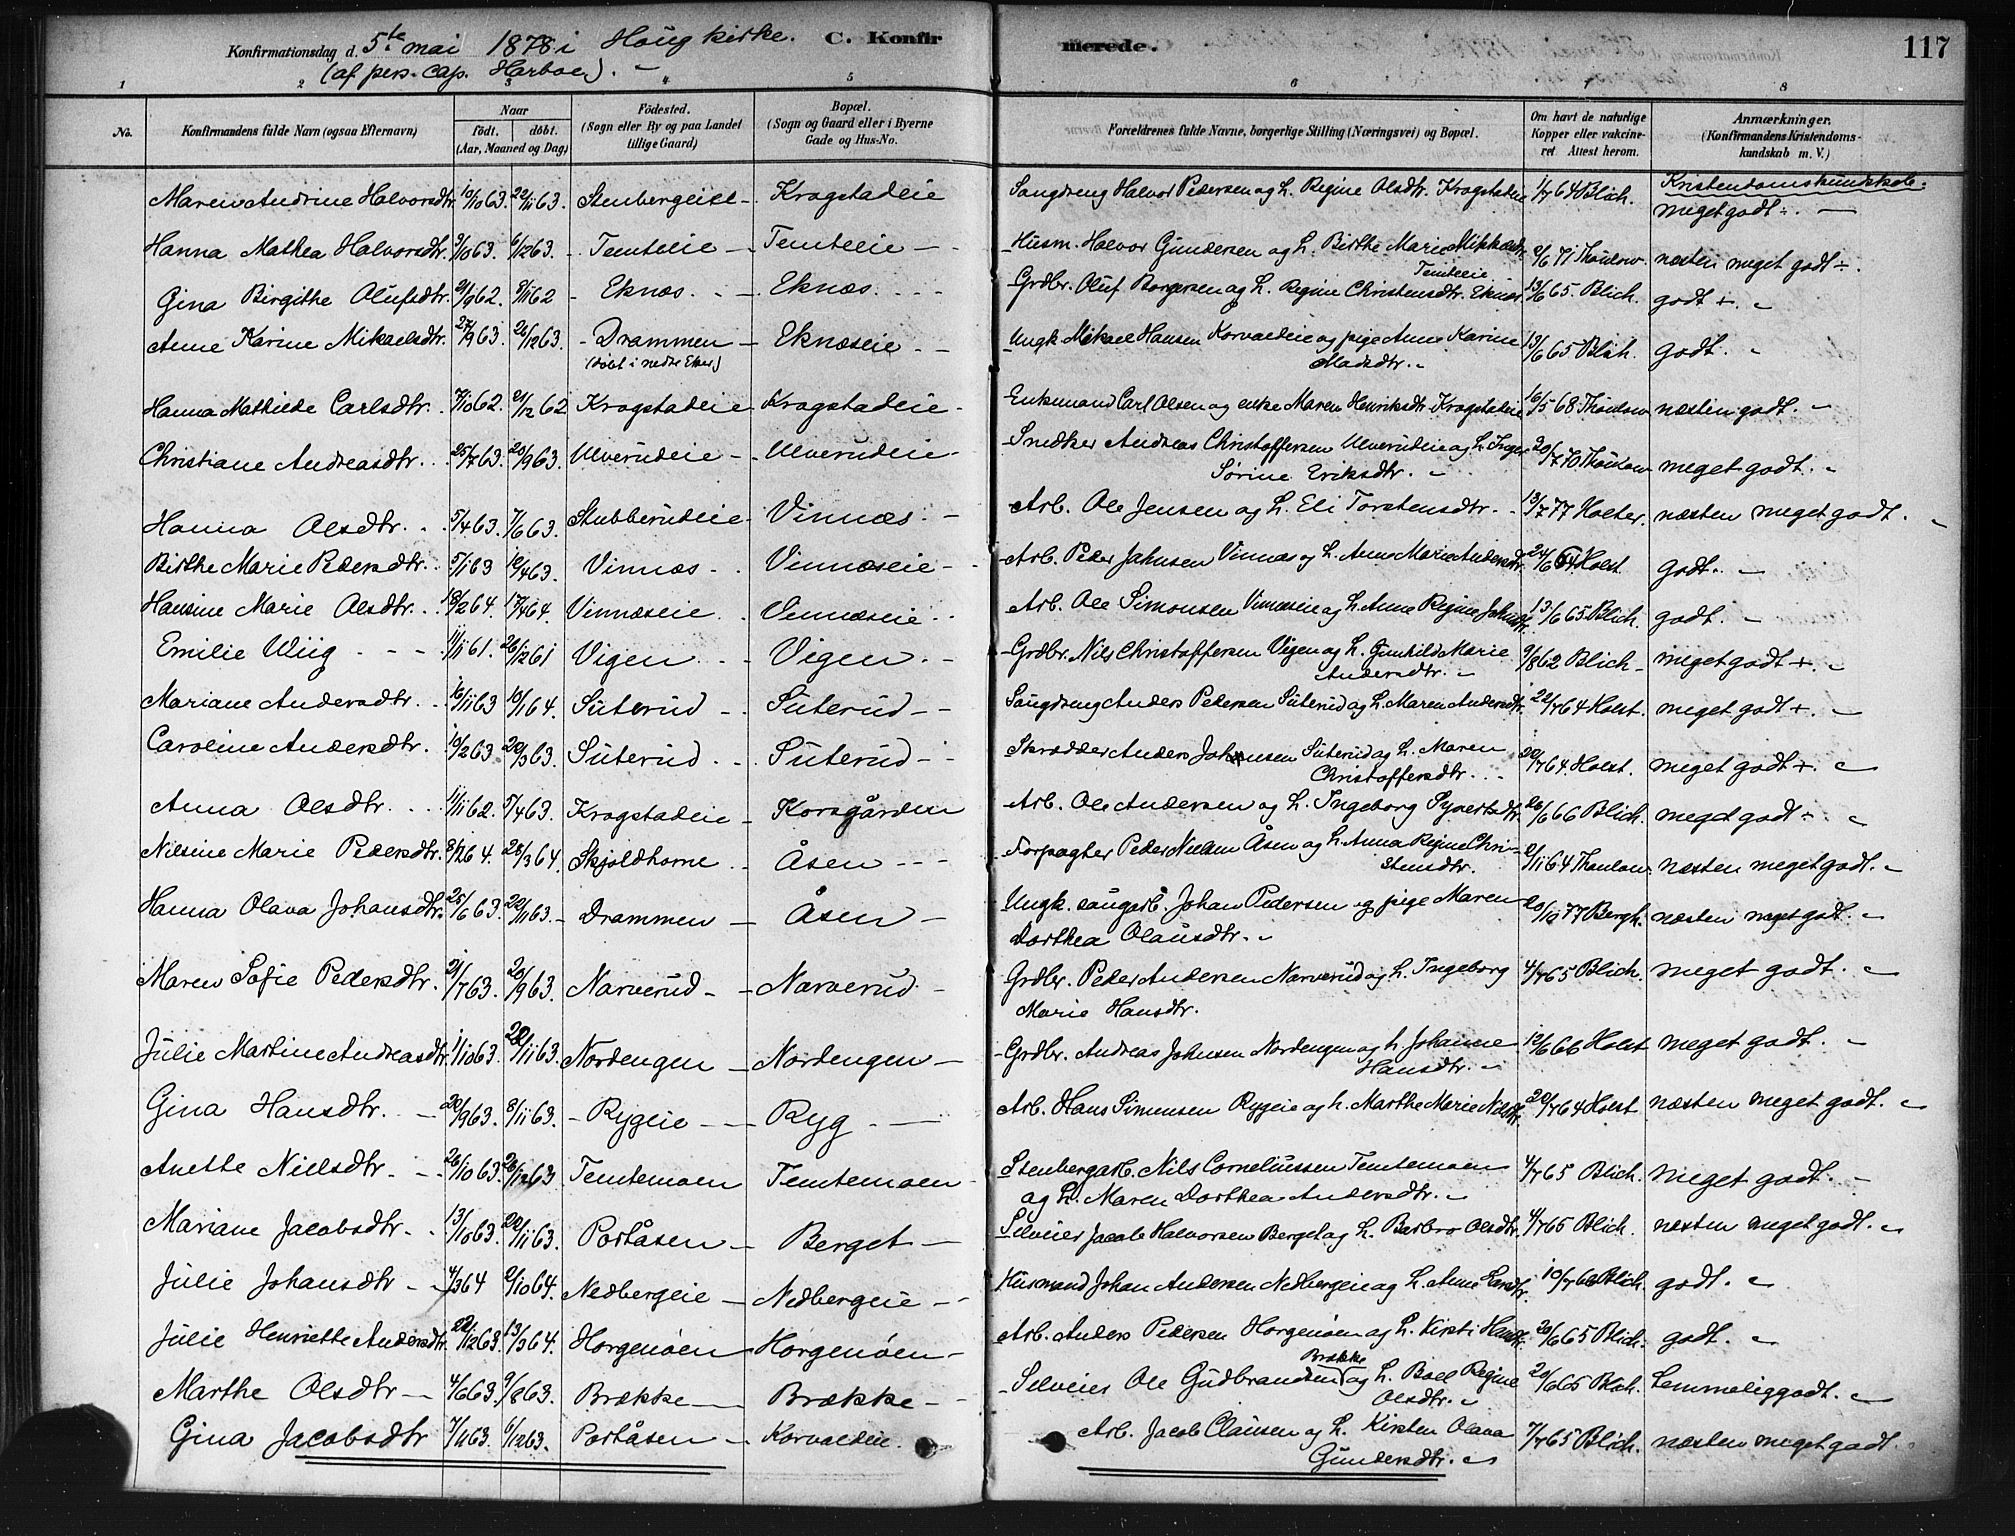 Konfirmationsdag d. 5te mai 1878 i Houg kirke. C. Konfirmerede. 117
(af pers. cap. Harboe).
1 2 3 4 5 6 7 8
No. Konfirmandens fulde Navn (ogsaa Efternavn) Naar født. døbt. (Aar, Maaned og Dag) Fødested. (Sogn eller By og paa Landet tillige Gaard) Bopæl. (Sogn og Gaard eller i Byerne Gade og Hus-No. Forældrenes fulde Navne, borgerlige Stilling (Næringsvei) og Bopæl. Om havt de naturlige Kopper eller vaccineret. Attest herom. Anmærkninger. (Konfirmandens Kristendomskundskab m. V.)
Kristendomskundskab:
Maren Andrine Halvorsdtr. 10/10 63. 22/11 63. Stenbergeiet Krogstadeie Saugdreng Halvor Pedersen og h. Regine Olsdtr. Krogstadeie 1/7 64 Blich. meget godt ÷.
Hanna Mathea Halvorsdtr. 3/10 63. 6/12 63. Temteeie Temteeie Husm. Halvor Gundersen og h. Birthe Marie Mikkelsdtr. Temteeie 9/6 71 Thaulow. næsten meget godt ÷.
Gina Birgithe Olufsdtr. 21/9 62. 8/11 62 Eknæs. Eknæs. Grdbr. Oluf Borgersen og h. Regine Christensdtr. Eknæs. 13/6 65. Blich. godt +.
Anne Karine Mikaelsdtr. 27/9 63. 26/12 63. Drammen (døbt i nedre Eker) Eknæseie. Ungk. Mikael Hansen Korvaldeie og pige Anne Karine Madsdtr. 13/6 65 Blich. godt.
Hanna Mathilde Carlsdtr. 7/10 62. 21/12 62 Krogstadeie Krogstadeie. Enkemand Carl Olsen og enke Maren Henriksdtr. Krogstadeie 16/5 68 Thaulow næsten godt.
Christiane Andreasdtr. 25/7 63. 20/9 63. Ulverudeie Ulverudeie Snedker Andreas Christoffersen Ulverudeie og h. Inger Sørine Eriksdtr. 20/7 70 Thaulow meget godt.
Hanna Olsdtr. 5/4 63. 7/6 63. Stubberudeie Vinnæs. Arb. Ole Jensen og h. Eli Torstensdtr. 13/7 77 Holter. næsten meget godt.
Birthe Marie Pedersdtr. 5/1 63 12/4 63. Vinnæs Vinnæseie Arb. Peder Jahnsen Vinnæs og h. Anne Marie Andersdtr. 24/6 64 Holst godt.
Hansine Marie Olsdtr. 18/2 64. 17/4 64. Vinnæseie Vinnæseie Arb. Ole Simonsen Vinnæseie og h. Anne Regine Johnsdtr. 13/6 65. Blich. godt.
Emilie Wiig 11/11 61. 26/12 61 Vigen Vigen. Grdbr. Nils Christoffersen Vigen og h. Gunhild Marie Andersdtr. 9/8 62 Blich meget godt +.
Mariane Andersdtr. 16/11 63 10/1 64. Suterud Suterud Saugdreng Anders Pedersen Suterud og h. Maren Andersdtr. 22/7 64 Holst. meget godt +.
Caroline Andersdtr. 10/2 63 20/3 63. Suterud Suterud Skrædder Anders Johansen Suterud og h. Maren Christoffersdtr. 20/7 64. Holst. meget godt +.
Anna Olsdtr. 11/11 62. 5/4 63. Krogstadeie Korsgården Arb. Ole Andersen og h. Ingeborg Syvertsdtr. 26/6 66 Blich. meget godt ÷.
Nilsine Marie Pedersdtr. 8/1 64. 28/3 64. Skjoldhorne Åsen Forpagter Peder Nielsen Åsen og h. Anna Regine Christensdtr. 2/11 64 Thaulow næsten meget godt.
Hanna Olava Johansdtr. 25/6 63. 22/11 63. Drammen Åsen Ungk. saugarb. Johan Pedersen og pige Maren Dorthea Olausdtr. 20/10 77 Bergh. næsten meget godt.
Maren Sofie Pedersdtr. 21/7 63. 20/9 63. Narverud Narverud Grdbr. Peder Andersen Narverud og h. Ingeborg Marie Hansdtr. 4/7 65 Blich. meget godt.
Julie Martine Andreasdtr. 1/10 63. 22/11 63. Nordengen Nordengen Grdbr. Andreas Johnsen Nordengen og h. Johanne Hansdtr. 12/6 66 Holst meget godt.
Gina Hansdtr. 20/9 63. 8/11 63. Rygeie Ryg. Arb. Hans Simensen Rygeie og h. Marthe Marie Nilsdtr. 20/7 64 Holst næsten meget godt.
Anette Nielsdtr. 26/10 63. 26/12 63 Temtemoen Temtemoen Stenbergarb. Nils Corneliussen Temtemoen og h. Maren Dorthea Andersdtr. 4/7 65 Blich. meget godt.
Mariane Jacobsdtr. 13/10 63. 22/11 63. Portåsen Berget Selveier Jacob Halvorsen Berget og h. Barbro Olsdtr. 4/7 65 Blich. næsten meget godt.
Julie Johansdtr 4/3 64 2/10 64. Nedbergeie Nedbergeie Husmand Johan Andersen Nedbergeie og h. Anne Larsdtr. 10/7 66 Blich. godt.
Julie Henriette Andersdtr. 22/12 63. 13/3 64. Horgenøen Horgenøen Arb. Anders Pedersen Horgenøen og h. Kirsti Hansdtr. 20/6 65 Blich. godt.
Marthe Olsdtr 4/6 63. 9/8 63. Brække Brække Selveier Ole Gudbrandsen Brække og h. Boel Regine Olsdtr. 20/6 65 Blich. temmelig godt.
Gina Jacobsdtr 7/11 63. 6/12 63. Portåsen Korvaldeie. Arb. Jacob Clausen og h. Kirsten Olava Gundersdtr. 7/7 65 Blich. næsten meget godt.